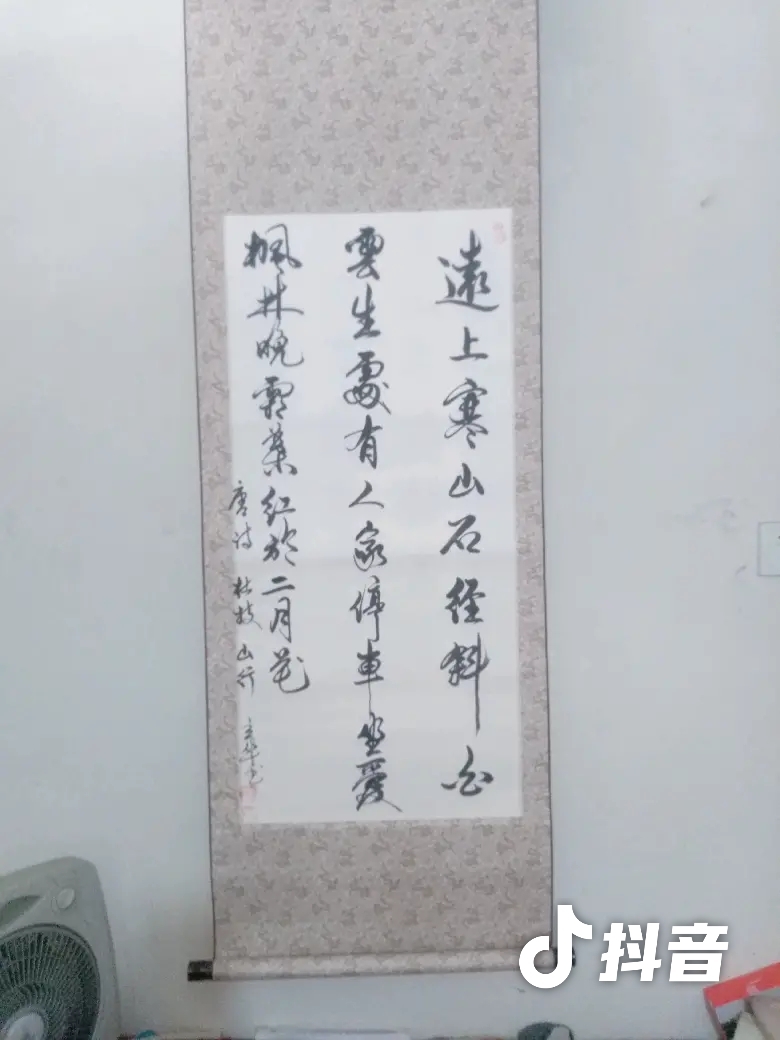 遠上寒山石径斜白
雲生處有人家停車坐愛
楓林晚霜葉紅於二月花
唐诗 杜牧 山行
抖音